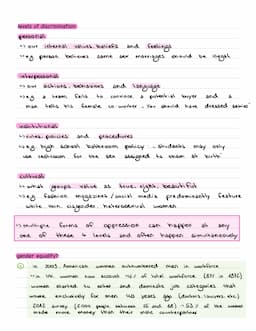 levels of discrimination
personal:
↪ our internal values, beliefs and feelings
↪ e.g. person believes same sex marriages should be illegal
interpersonal
↪ our actions, behaviours and language
↪ e.g. a team fails to convince a potential buyer and a
man tells his female co-worker - "you should have dressed sexier"
institutional:
↪ rules, policies and procedures
↪ e.g. high school bathroom policy - students may only
use restroom for the sex assigned to them at birth
cultural:
↪ what groups value as true, right, beautiful
↪ e.g. fashion magazines / social media predominantly feature
white, thin, cisgender, heterosexual women
↪ multiple forms of oppression can happen at any
one of these 4 levels and often happen simultaneously
gender equality?
in 2003, American women outnumbered men in workforce
women started to enter and dominate job categories that
where exclusively for men 40 years ago (doctors, lawyers, etc.)
made more money than their male counterparts